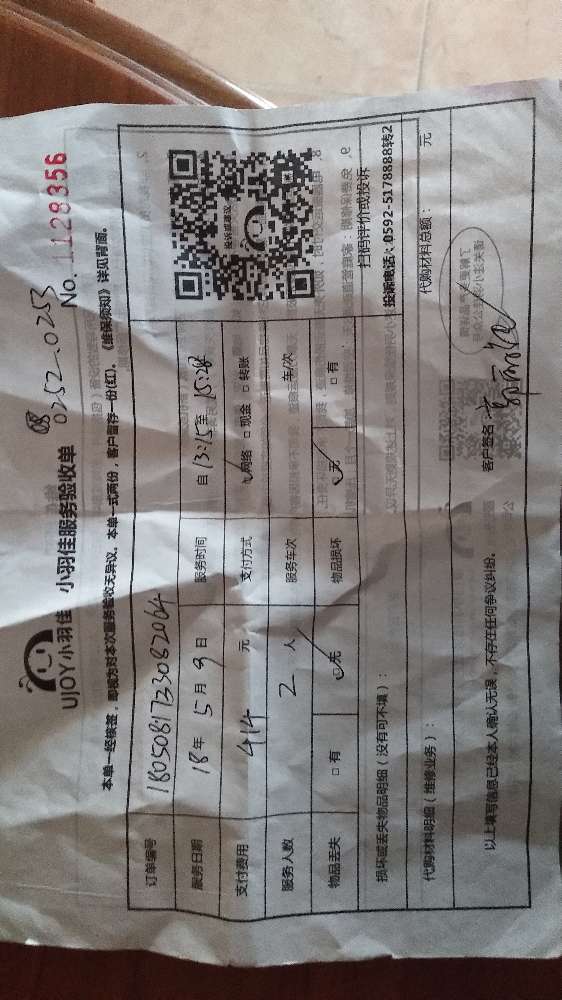 UJOY小羽佳 小羽佳服务验收单
0252.0253
No. 1128356
本单一经核签，即视为对本次服务验收无异议。本单一式两份，客户留存一份(红)。《维保须知》详见背面。
订单编号 1805081733082064
服务日期 18年5月9日 服务时间 自13:15至15:28
支付费用 414 元 支付方式 ☑网络 □现金 □转账
服务人数 2 人 服务车次 车/次
物品丢失 □有 ☑无 物品损坏 ☑无 □有
投诉或建议
扫码评价或投诉
投诉电话：0592-5178888转2
损坏或丢失物品明细（没有可不填）：
代购材料明细（维修业务）： 代购材料总额： 元
以上填写信息已经本人确认无误，不存在任何争议纠纷。 客户签名